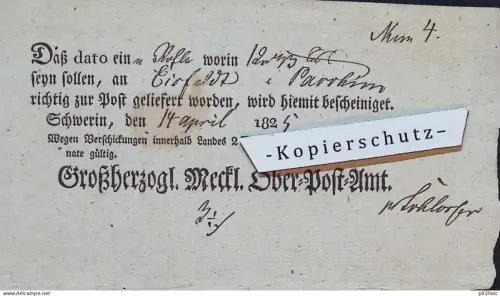 Num 4.
Daß dato ein Rolle worin 12
seyn sollen, an Parchim
richtig zur Post geliefert worden, wird hiemit bescheiniget.
Schwerin, den 14 April 1825
Wegen Verschickungen innerhalb Landes 2
nate gültig.
-Kopierschutz-
Großherzogl. Meckl. Ober-Post-Amt.